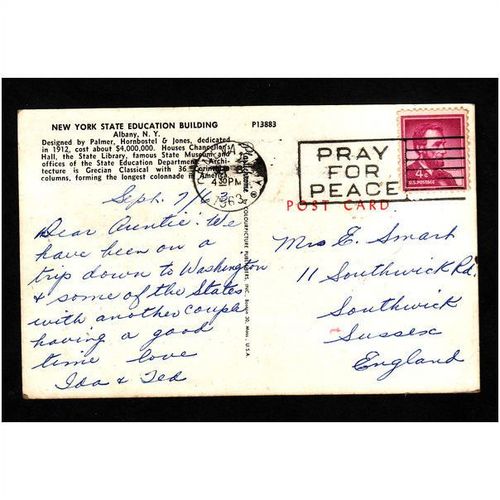 NEW YORK STATE EDUCATION BUILDING
Albany, N. Y.
P13883
Designed by Palmer, Hornbostel & Jones, dedicated
in 1912, cost about $4,000,000. Houses Chancellor's
Hall, the State Library, famous State Museum and
offices of the State Education Department. Archi-
tecture is Grecian Classical with 36 Corinthian
columns, forming the longest colonnade in America.
Sept. 7/63
Dear Auntie: We
have been on a
trip down to Washington
& some of the States
with another couple
having a good
time love
Ida & Ted
Plastichrome ®
COLOURPICTURE PUBLISHERS, INC. Boston 30, Mass., U.S.A.
PM
1963
PRAY
FOR
PEACE
4¢
U.S. POSTAGE
POST CARD
Mrs E. Smart
11 Southwick Rd.
Southwick
Sussex
England